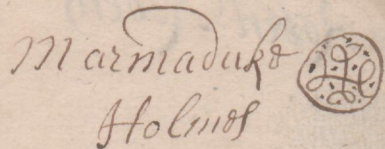 Marmaduke
Holmes